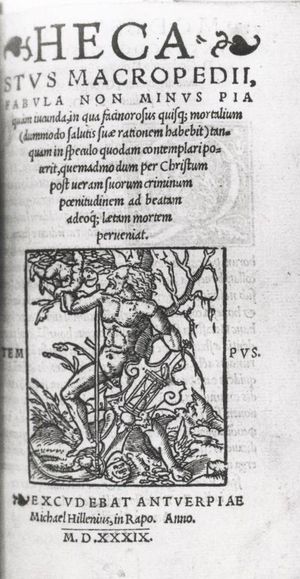 HECA
STVS MACROPEDII,
FABVLA NON MINVS PIA
quam iucunda, in qua facinorosus quisq; mortalium
(dummodo salutis suæ rationem habebit) tan-
quam in speculo quodam contemplari po-
terit, quemadmodum per Christum
post ueram suorum criminum
pœnitudinem ad beatam
adeoq; lætam mortem
perueniat.
TEM PVS.
EXCVDEBAT ANTVERPIAE
Michael Hillenius, in Rapo. Anno.
M. D. XXXIX.